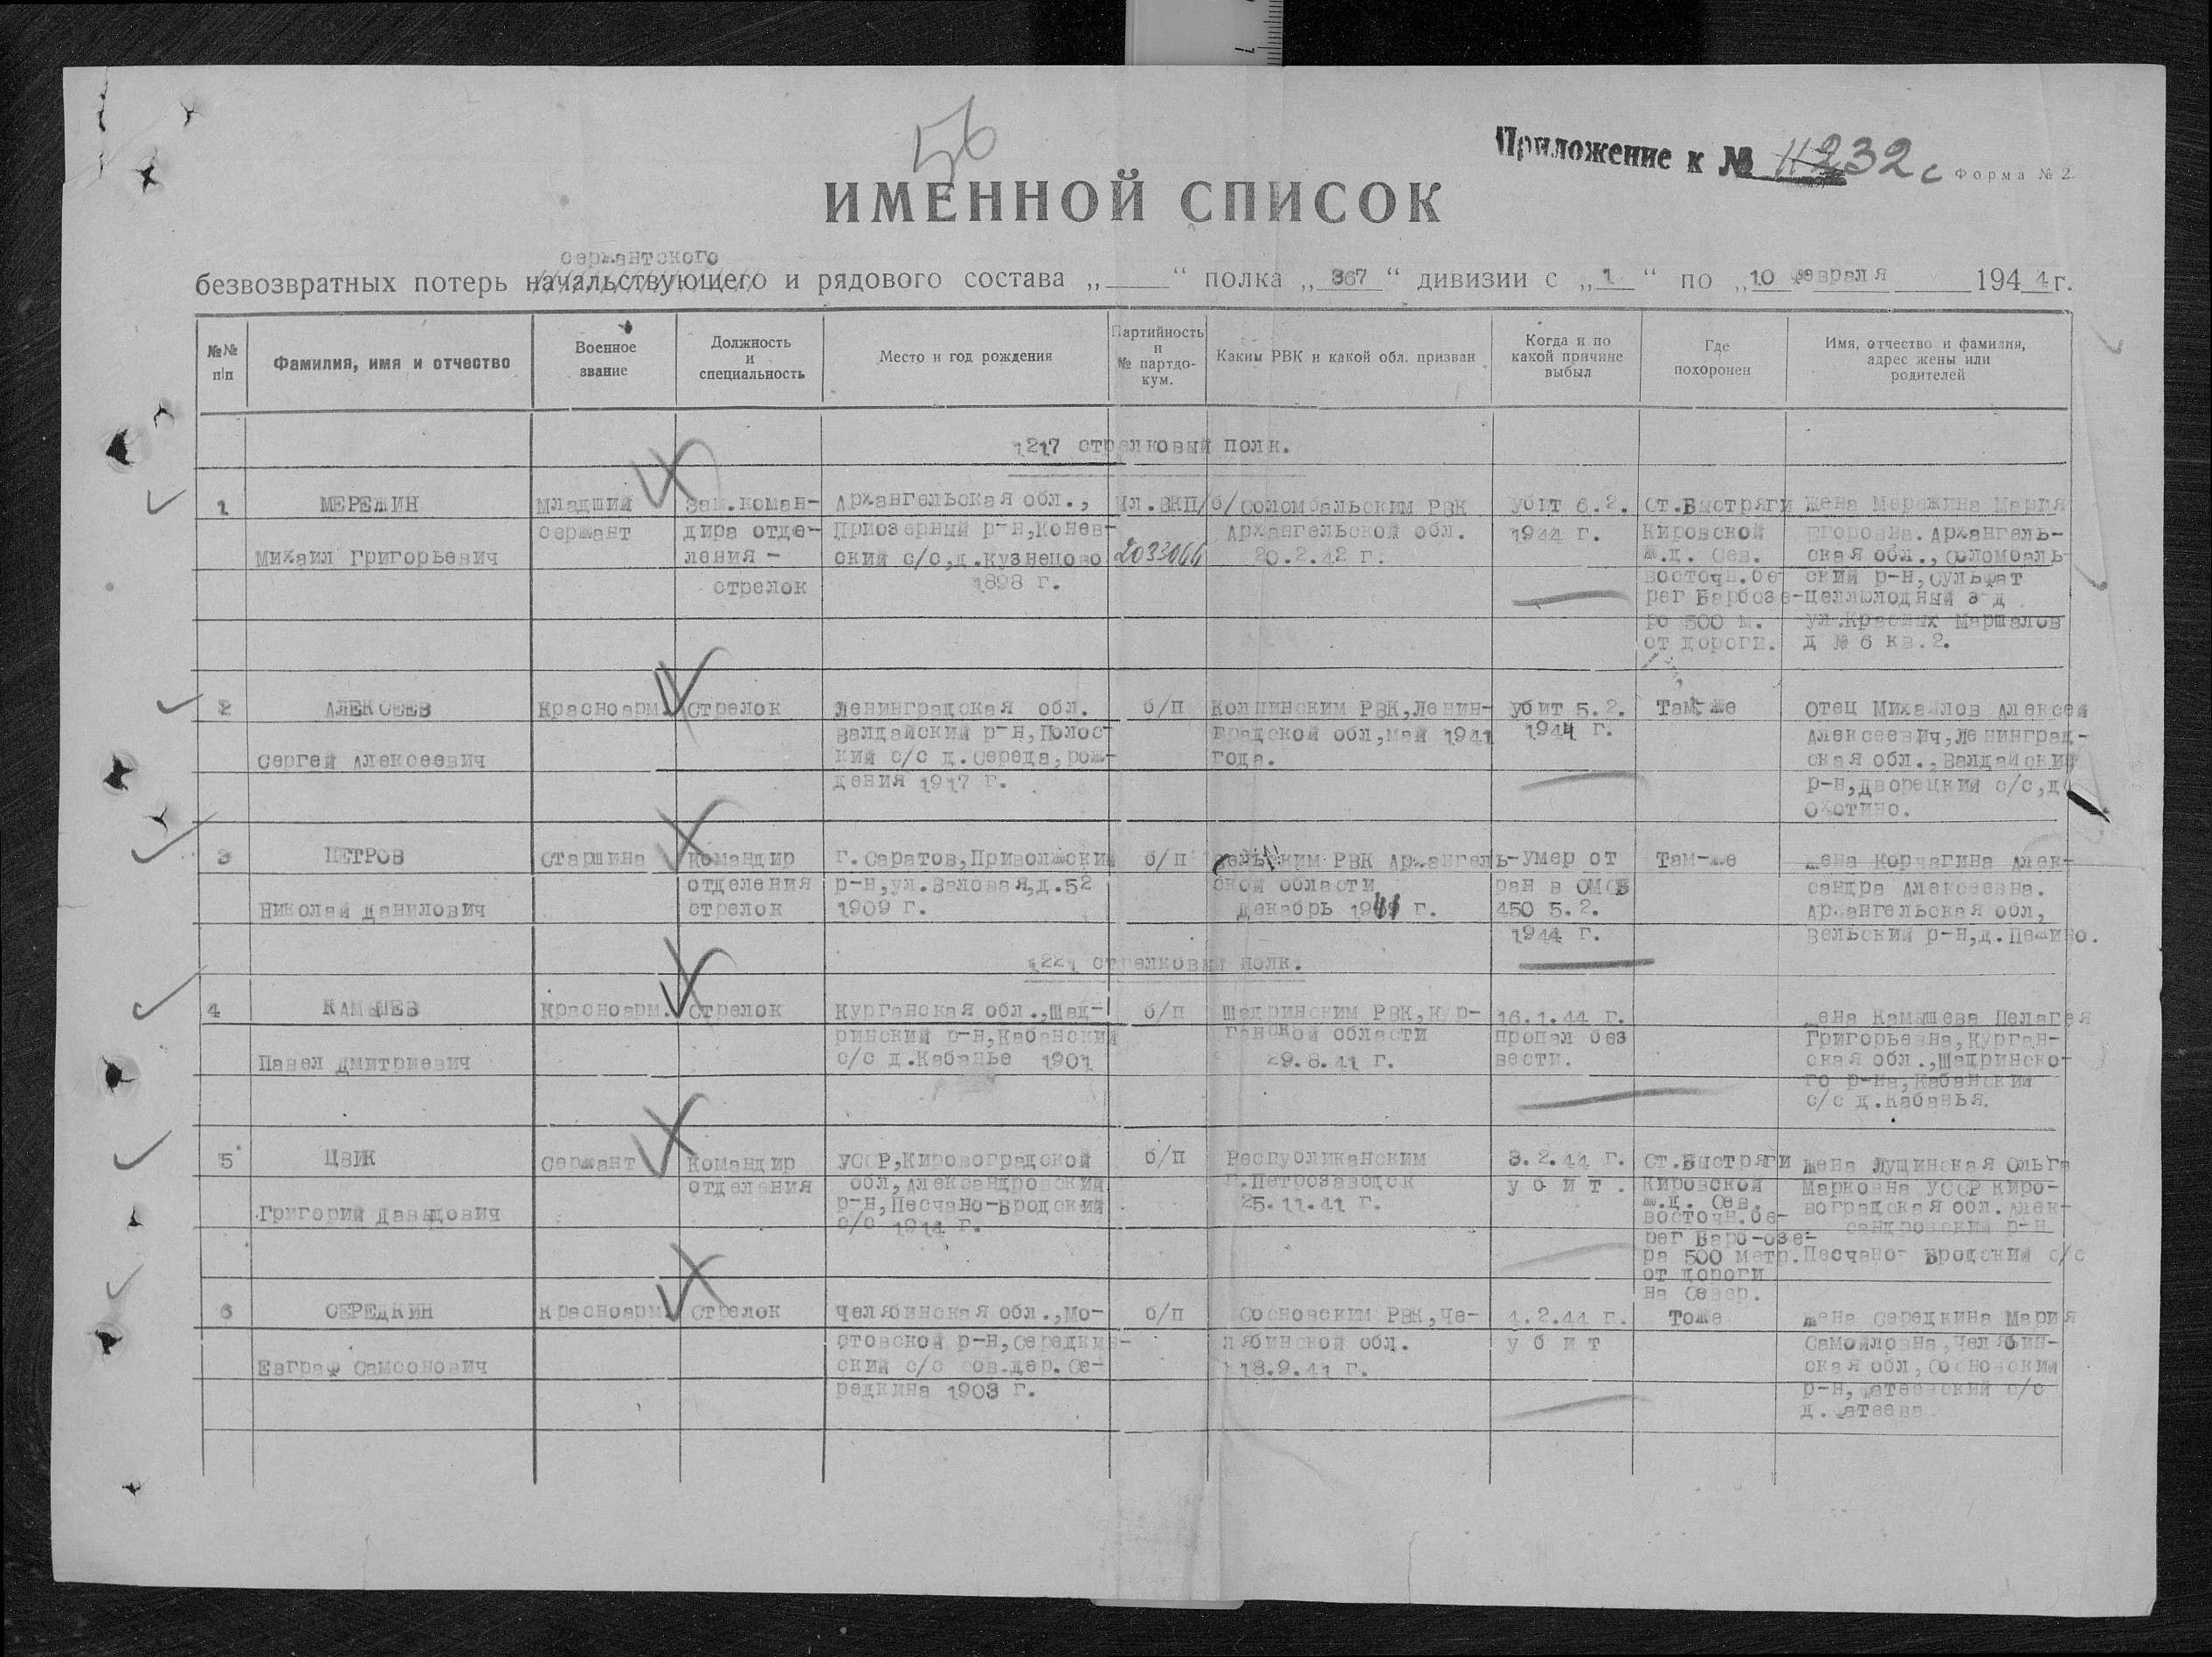 56
Приложение к № 11232с
Форма № 2
ИМЕННОЙ СПИСОК
сержантского
безвозвратных потерь начальствующего и рядового состава „ “ полка „367“ дивизии с „1“ по „10 февраля 1944 г.
№№ п|п
Фамилия, имя и отчество
Военное звание
Должность и специальность
Место и год рождения
Партийность и № партдокум.
Каким РВК и какой обл. призван
Когда и по какой причине выбыл
Где похоронен
Имя, отчество и фамилия, адрес жены или родителей
1217 стрелковый полк.
1
МЕРЕЖИН
Михаил Григорьевич
Младший
сержант
Зам.коман-
дира отде-
ления -
стрелок
Архангельская обл.,
Приозерный р-н,Конев-
ский с/с,д.Кузнецово
1898 г.
Чл.ВКП/б/
2033066
Соломбальским РВК
Архангельской обл.
20.2.42 г.
убит 6.2.
1944 г.
Ст.Быстряги
Кировской
ж.д. Сев.
восточн.бе-
рег Барбозе-
ро 500 м.
от дороги.
жена Мережина Мария
Егоровна.Архангель-
ская обл.,Соломбаль-
ский р-н,Сульфат
Целлюлодный з-д
ул.Красных Маршалов
д № 6 кв.2.
2
АЛЕКСЕЕВ
Сергей Алексеевич
Красноарм.
Стрелок
Ленинградская обл.
Валдайский р-н,Полос-
кий с/с д.Середа,рож-
дения 1917 г.
б/п
Колпинским РВК,Ленин-
градской обл,май 1941
года.
убит 5.2.
1944 г.
Там-же
Отец Михайлов Алексей
Алексеевич,Ленинград-
ская обл.,Валдайский
р-н,Дворецкий с/с,д
Охотино.
3
ПЕТРОВ
Николай Данилович
Старшина
Командир
отделения
стрелок
г.Саратов,Приволжский
р-н,ул.Валовая,д.52
1909 г.
б/п
Вельским РВК Архангель-
ской области
декабрь 1941 г.
умер от
ран в ОМСБ
450 5.2.
1944 г.
Там-же
жена Корчагина Алек-
сандра Алексеевна.
Архангельская обл,
Вельский р-н,д.Пежино.
1221 стрелковый полк.
4
КАМЫШЕВ
Павел Дмитриевич
Красноарм.
Стрелок
Курганская обл.,Шад-
ринский р-н,Кабанский
с/с д.Кабанье 1901
б/п
Шадринским РВК,Кур-
ганской области
29.8.41 г.
16.1.44 г.
пропал без
вести.
жена Камышева Пелагея
Григорьевна,Курган-
ская обл.,Шадринско-
го р-на,Кабанский
с/с д.Кабанья.
5
ЦВИК
Григорий Давыдович
Сержант
Командир
отделения
УССР,Кировоградской
обл,Александровский
р-н,Песчано-Бродский
с/с 1914 г.
б/п
Республиканским
г.Петрозаводск
25.11.41 г.
3.2.44 г.
убит.
Ст.Быстряги
Кировской
ж.д. Сев.
восточн.бе-
рег Барб-озе-
ра 500 метр.
от дороги
на север.
жена Лущинская Ольга
Марковна УССР Киро-
воградская обл.Алек-
сандровский р-н
Песчано- Бродский с/с
6
СЕРЕДКИН
Евграф Самсонович
Красноарм.
Стрелок
Челябинская обл.,Мо-
стовской р-н,Середкин-
ский с/с сов.дер.Се-
редкина 1903 г.
б/п
Сосновским РВК,Че-
лябинской обл.
18.9.41 г.
4.2.44 г.
убит
Тоже
жена Середкина Мария
Самойловна,Челябин-
ская обл,Сосновский
р-н, с/с
д.